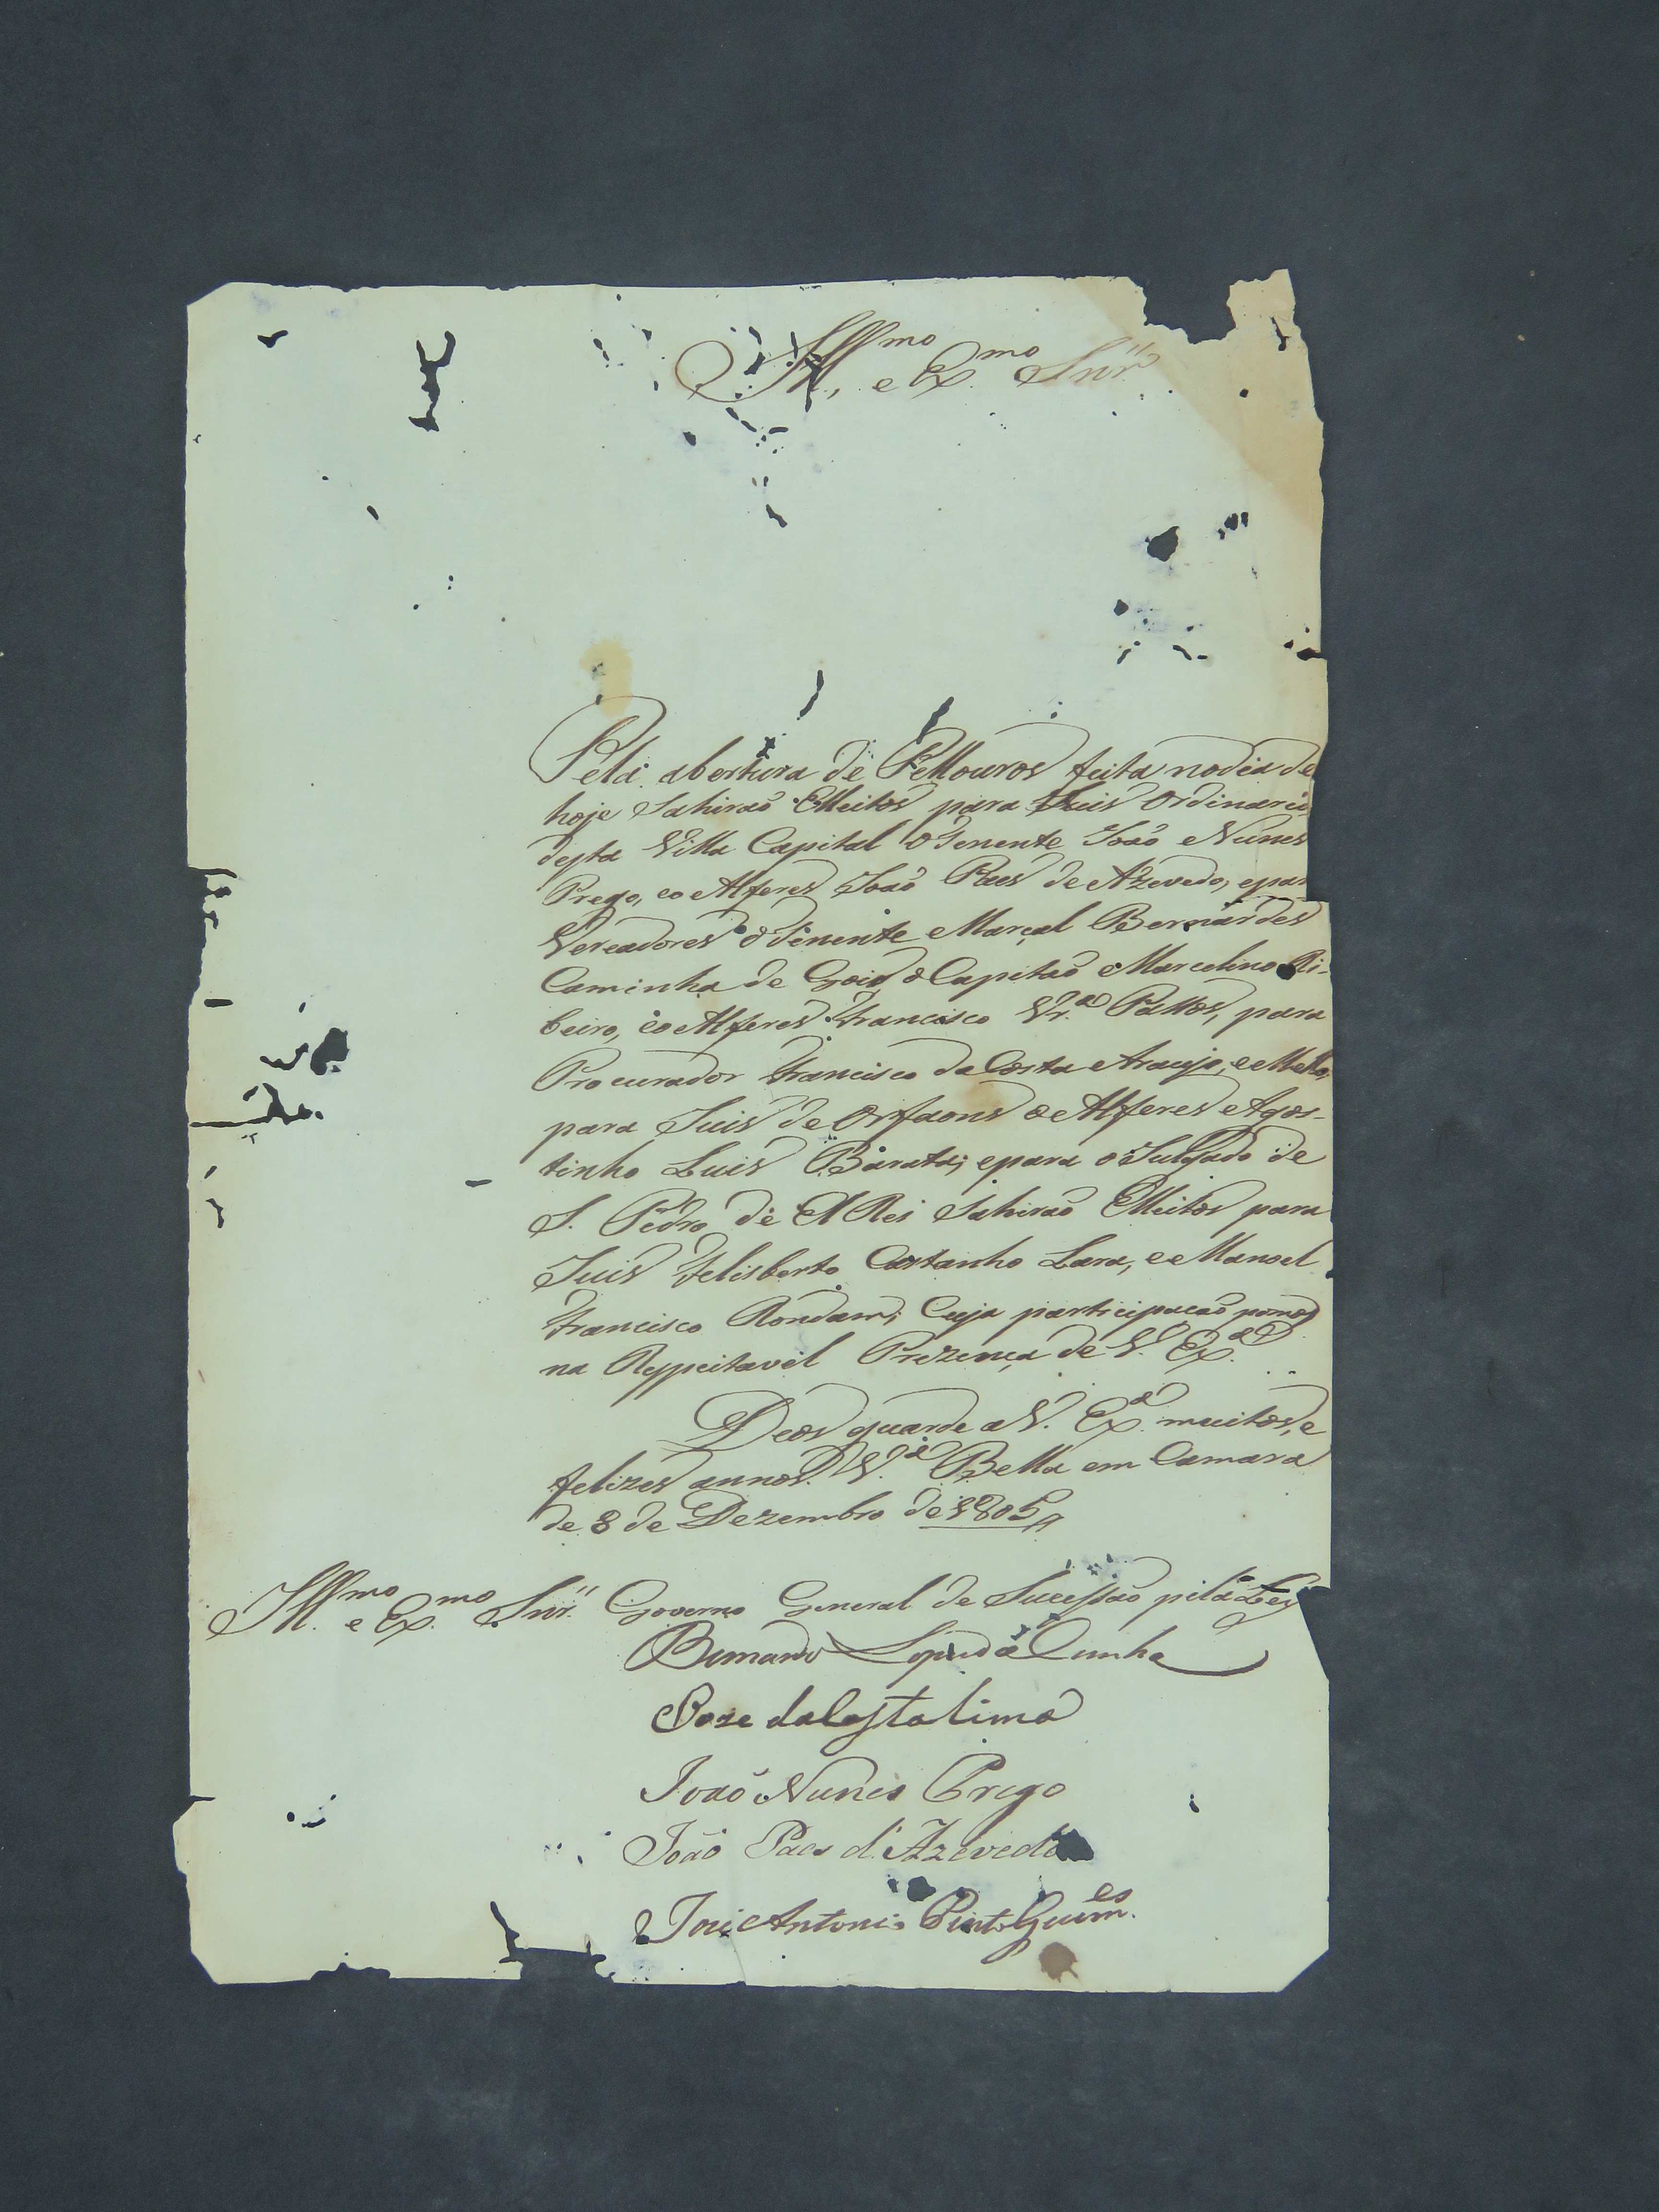 Ill.mo, e Ex.mo Snr.
Pela abertura de Pellouros feita nodia de
hoje Sahiraõ Elleitos para Juis Ordinario
desta Villa Capital o Tenente Joaõ Nunes
Prego, eo Alferes Joaõ Paes de Azevedo, epar
Vereadores o Tenente Marçal Bernardes
Caminha de Gois o Capitaõ Marcelino Ri-
beiro, eo Alferes Francisco Vr.a Passos, para
Procurador Francisco da Costa Araujo, e Mello,
para Juis de Orfaons o Alferes Agos-
tinho Luis Barata; epara o Julgado de
S. Pedro de El Rei Sahiraõ Elleitos para
Juis Felisberto Castanho Lara, e Manoel
Francisco Rondam; Cuja participaçaõ pomos
na Respeitavel Prezença de V. Ex.a
Deos guarde a V. Ex.a muitos, e
felizes annos. V.a Bella em Camara
de 8 de Dezembro de 1805
Ill.mo e Ex.mo Snr. Governo General de Sucessaõ pela Ley
Bernardo Lopes da Cunha
Joze da Costa lima
Joaõ Nunes Prego
Joaõ Paes d'Azevedo
Joze Antonio Pinto Guim.es